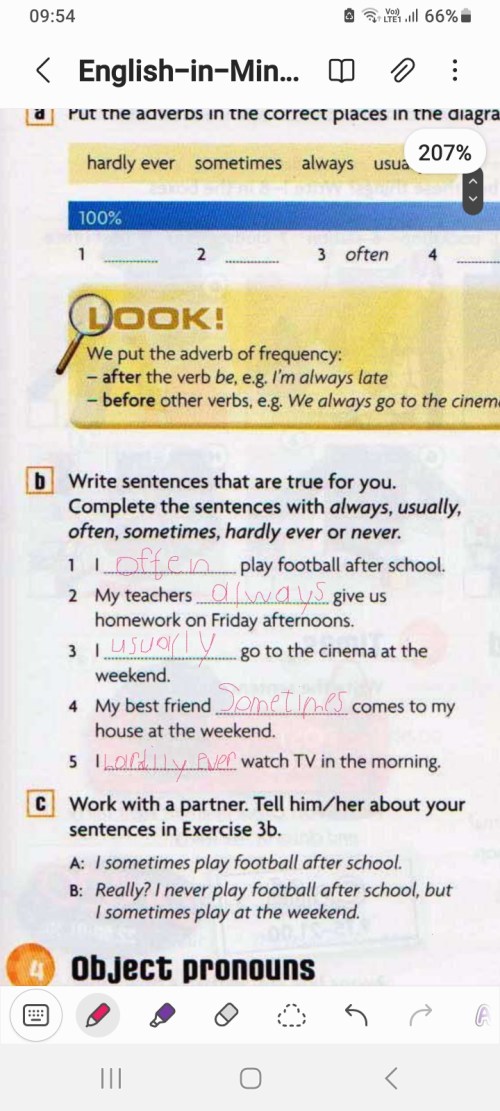 09:54 Vo)) LTE1 66%
English-in-Min...
a Put the adverbs in the correct places in the diagra
hardly ever sometimes always usua
207%
100%
1 2 3 often 4
LOOK!
We put the adverb of frequency:
– after the verb be, e.g. I'm always late
– before other verbs, e.g. We always go to the cinem
b Write sentences that are true for you.
Complete the sentences with always, usually,
often, sometimes, hardly ever or never.
1 I offen play football after school.
2 My teachers always give us
homework on Friday afternoons.
3 I usually go to the cinema at the
weekend.
4 My best friend Sometimes comes to my
house at the weekend.
5 I hardlly ever watch TV in the morning.
c Work with a partner. Tell him/her about your
sentences in Exercise 3b.
A: I sometimes play football after school.
B: Really? I never play football after school, but
I sometimes play at the weekend.
4 Object pronouns